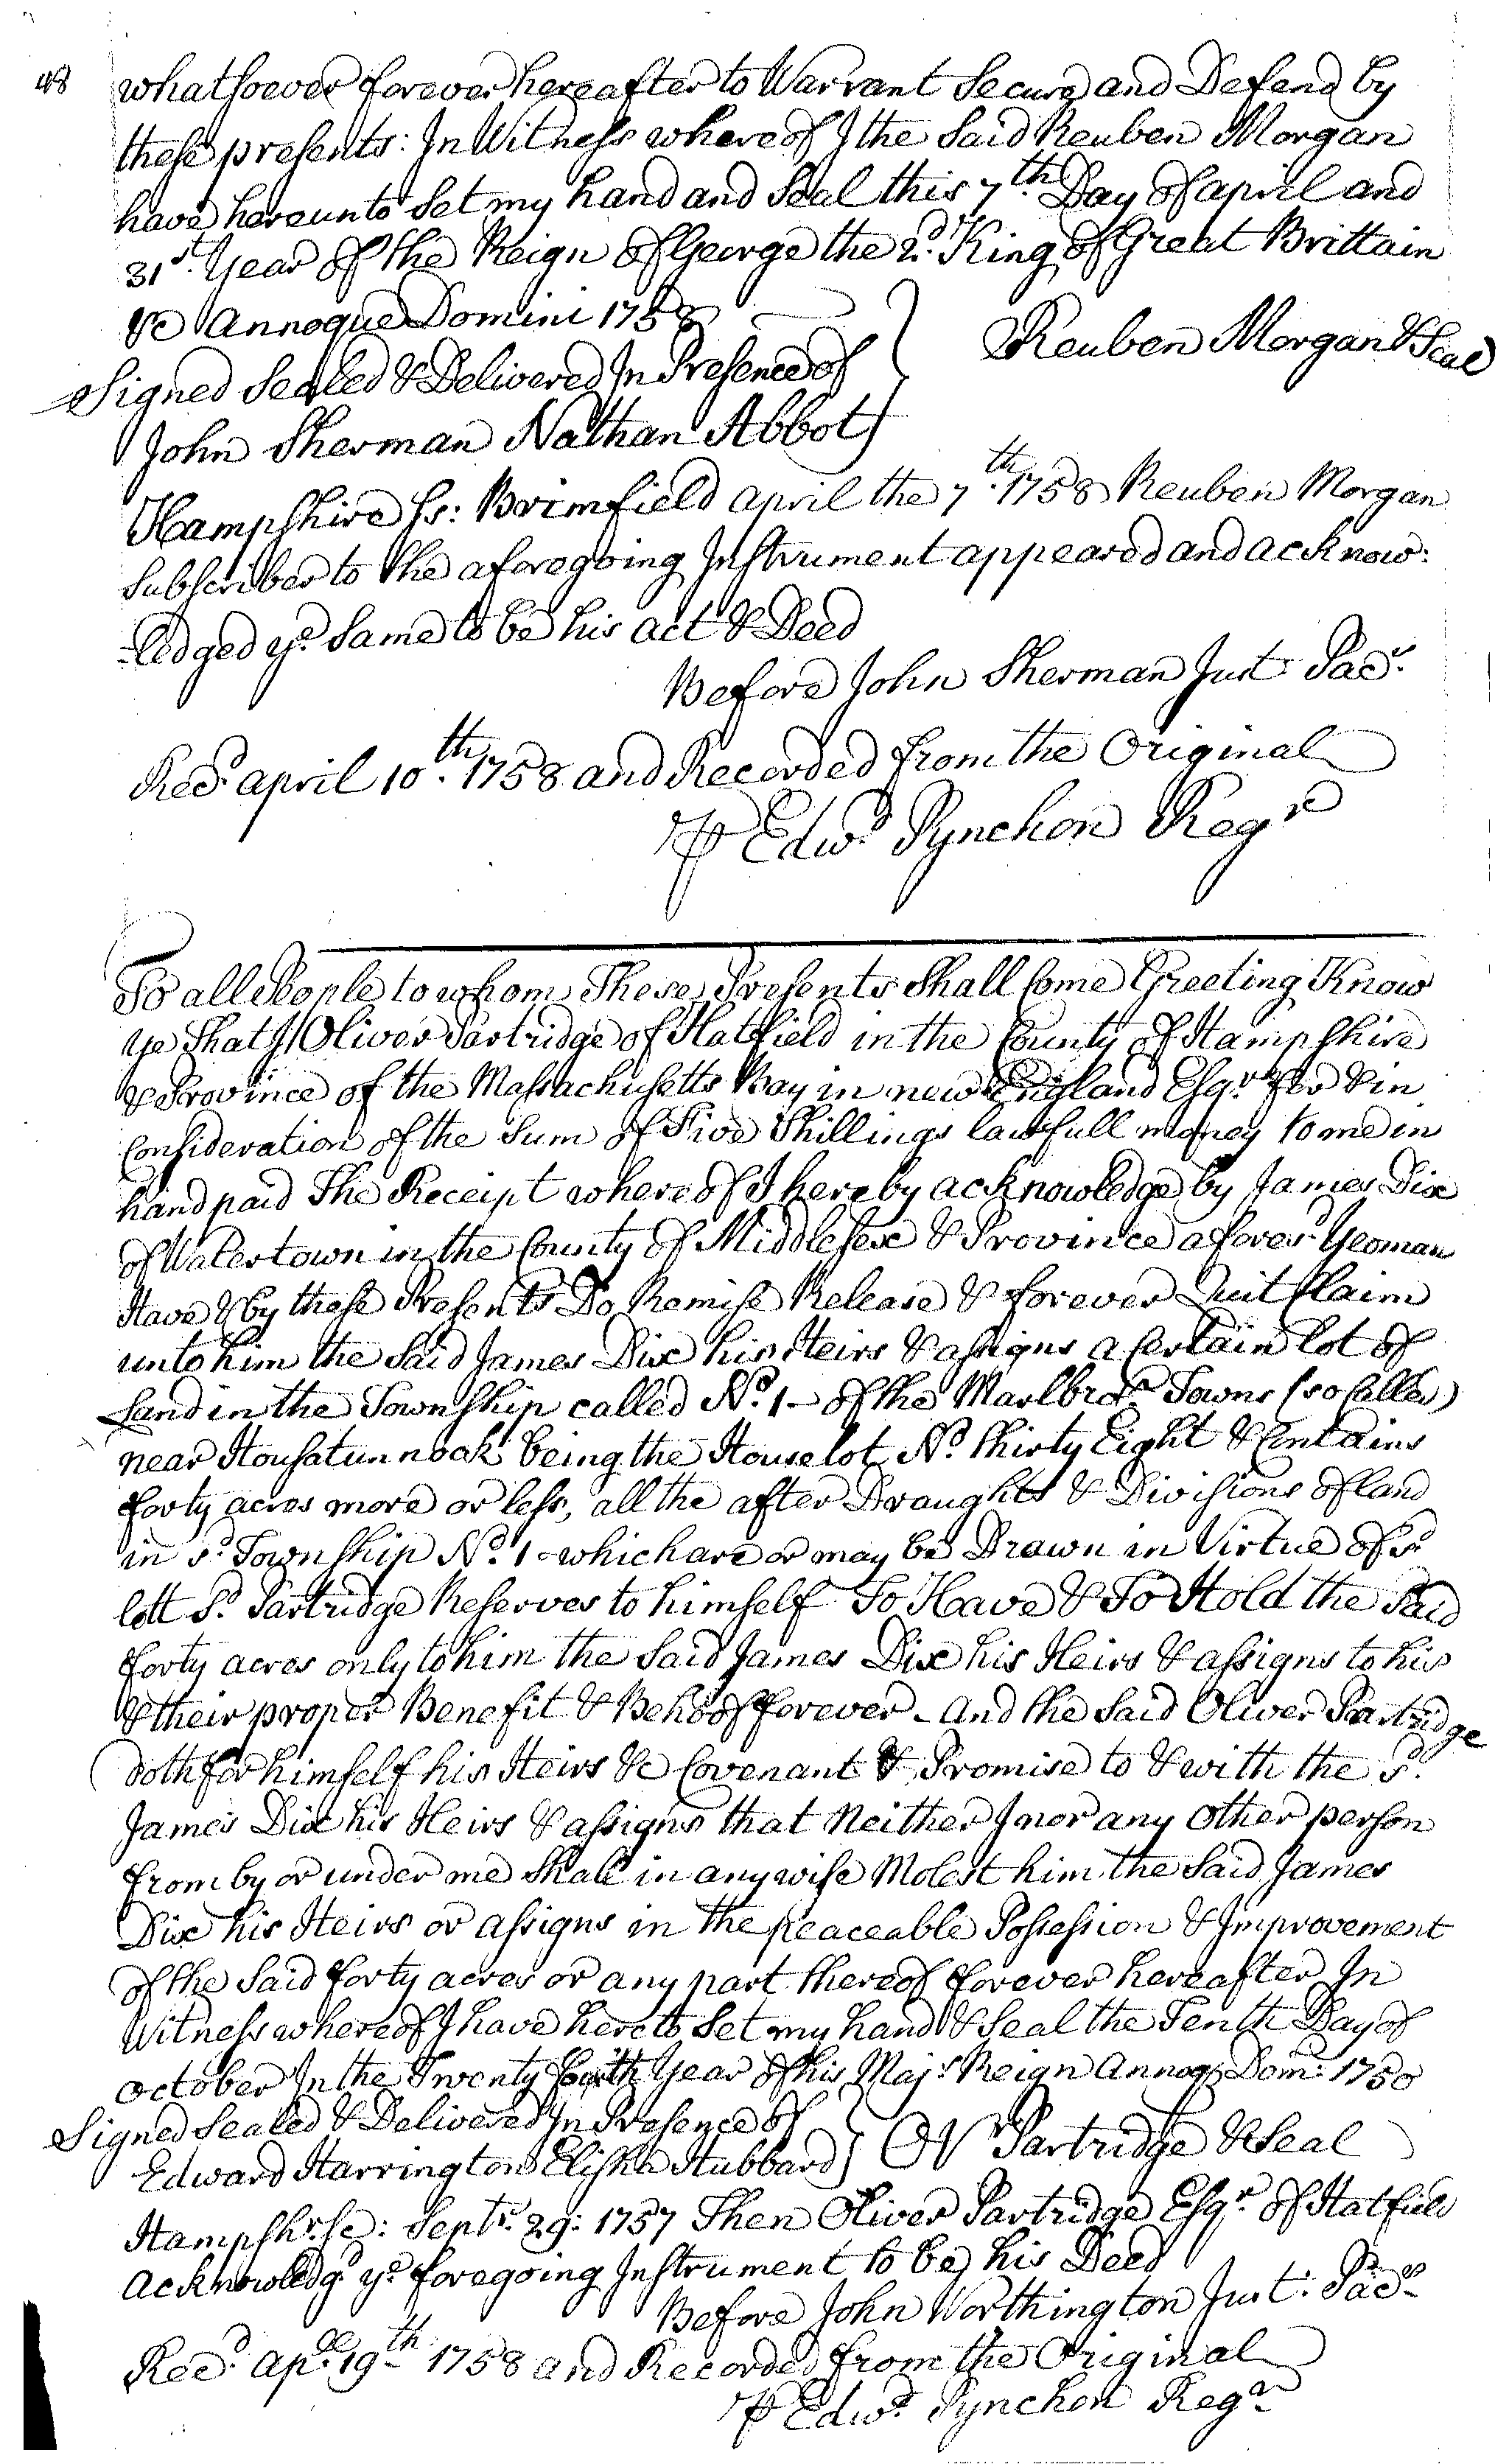 48
whatsoever forever hereafter to Warrant Secure and Defend by
these presents: In Witness whereof I the Said Reuben Morgan
have hereunto Set my hand and Seal this 7th. Day of april and
31st. Year of the Reign of George the 2d. King of Great Brittain
&c Annoque Domini 1758
Signed Sealed & Delivered In Presence of
Reuben Morgan & Seal
John Sherman Nathan Abbot
Hampshire Ss: Brimfield april the 7th. 1758 Reuben Morgan
Subscriber to the aforegoing Instrument appeared and acknow:
-ledged ye. Same to be his act & Deed
Before John Sherman Just: Pacs.
Recd. april 10th. 1758 and Recorded from the Original
⅌ Edwd. Pynchon Regr
To all People to whom These Presents Shall Come Greeting Know
ye That I Oliver Partridge of Hatfield in the County of Hampshire
& Province of the Massachusetts Bay in new England Esqr. for & in
Consideration of the Sum of Five Shillings lawfull money to me in
hand paid The Receipt whereof I hereby acknowledge by James Dix
of Watertown in the County of Middlesex & Province aforesd. Yeoman
Have & by these Presents Do Remise Release & forever Quit Claim
unto him the Said James Dix his Heirs & assigns a Certain lot of
Land in the Township called No. 1 - of the Marlbro Towns (so Called)
near Housatunnock being the House lot No. Thirty Eight & Contains
forty acres more or less, all the after Draughts & Divisions of land
in sd. Township No. 1 - which are or may be Drawn in Virtue of sd.
lott Sd. Partridge Reserves to himself To Have & To Hold the Said
forty acres only to him the Said James Dix his Heirs & assigns to his
& their proper Benefit & Behoof forever - And the Said Oliver Partridge
doth for himself his Heirs &c Covenant & Promise to & with the sd.
James Dix his Heirs & assigns that Neither I nor any Other person
from by or under me Shall in any wise Molest him the Said James
Dix his Heirs or assigns in the peaceable Possession & Improvement
of the Said forty acres or any part thereof forever hereafter In
Witness whereof I have hereto Set my hand & Seal the Tenth Day of
October In the Twenty fourth Year of his Majs. Reign Annoq Dom: 1750
Signed Sealed & Delivered In Presence of
Edward Harrington Elisha Hubbard
Olvr Partridge & Seal
Hampshr. Sc: Septr. 29: 1757 Then Oliver Partridge Esqr. of Hatfield
Acknowledgd. ye. foregoing Instrument to be his Deed
Before John Worthington Just: Pacs.
Recd. Apl. 19th. 1758 and Recorded from the Original
⅌ Edwd. Pynchon Regr.